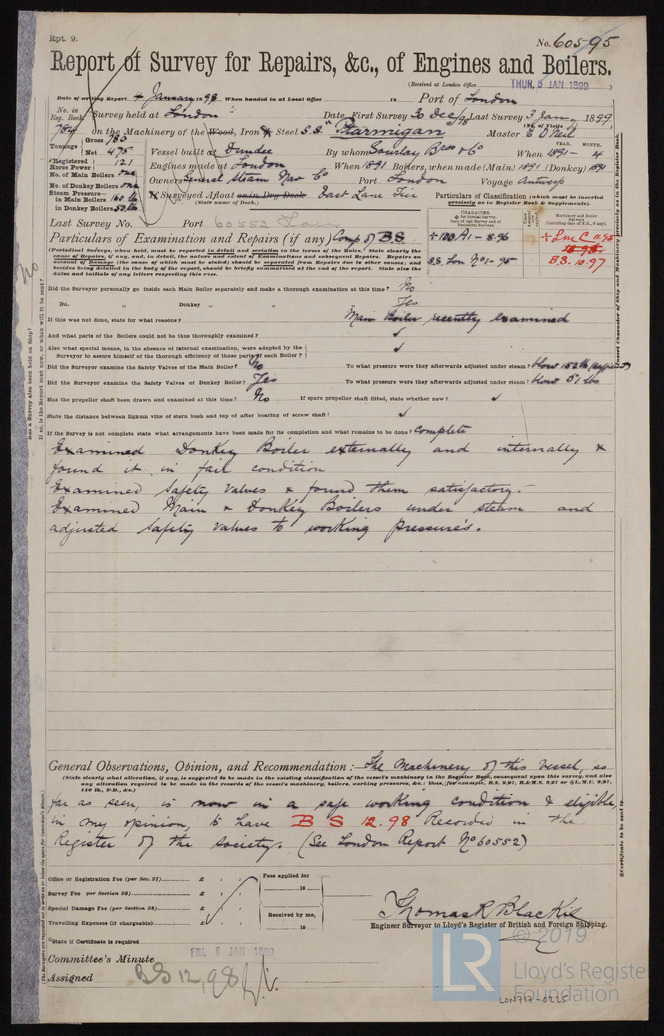 Rpt. 9.
No. 60595
Report of Survey for Repairs, &c., of Engines and Boilers.
(Received at London Office THUR, 5 JAN 1899 )
Date of writing Report 4 January 1898 When handed in at Local Office 18 Port of London
No. in Reg. Book. Survey held at London Date, First Survey 20 Dec/98 Last Survey 3 Jany 1899
(No. of Visits )
784 on the Machinery of the Wood, Iron & Steel S.S. "Ptarmigan" Master E O'Neil
Tonnage Gross 785 Net 475 Vessel built at Dundee By whom Gourlay Bros & Co When 1891 - 4
YEAR. MONTH.
Registered Horse Power 121 Engines made at London When 1891 Boilers, when made (Main) 1891 (Donkey) 1891
No. of Main Boilers one
No. of Donkey Boilers one Owners General Steam Nav Co Port London Voyage Antwerp
Steam Pressure- in Main Boilers 160 lb in Donkey Boilers 50 lb Surveyed Afloat or in Dry Dock East Lane Tier
(State name of Dock.)
Particulars of Classification (which must be inserted precisely as in Register Book & Supplements).
Last Survey No. Port 60552 Lon
Particulars of Examination and Repairs (if any) Comp of B.S.
+ 100 A1 - 8.96
S.S. Lon No 1 - 95
+ LMC 11.95
BS. 10.97
Did the Surveyor personally go inside each Main Boiler separately and make a thorough examination at this time? No
Do. Donkey " " " Yes
If this was not done, state for what reasons? Main Boiler recently examined
And what parts of the Boilers could not be thus thoroughly examined?
Also what special means, in the absence of internal examination, were adopted by the Surveyor to assure himself of the thorough efficiency of those parts of each Boiler?
Did the Surveyor examine the Safety Valves of the Main Boiler? No To what pressure were they afterwards adjusted under steam?
Did the Surveyor examine the Safety Valves of Donkey Boiler? Yes To what pressure were they afterwards adjusted under steam? blow 51 lbs
Has the propeller shaft been drawn and examined at this time? No If spare propeller shaft fitted, state whether new?
State the distance between lignum vitæ of stern bush and top of after bearing of screw shaft:
If the Survey is not complete state what arrangements have been made for its completion and what remains to be done? Complete
Examined Donkey Boiler externally and internally &
found it in fair condition
Examined safety valves & found them satisfactory.-
Examined Main & Donkey Boilers under steam and
adjusted safety valves to working pressure's.
General Observations, Opinion, and Recommendation :- The Machinery of this Vessel, so
(State clearly what alteration, if any, is suggested to be made in the existing classification of the vessel's machinery in the Register Book, consequent upon this survey, and also
any alteration required to be made in the records of the vessel's machinery, boilers, working pressures, &c.: thus, for example, B.S. 9,97, B.&M.S. 9,97 or L.M.C. 9,97,
140 lb., F.D., &c.)
far as seen, is now in a safe working condition & eligible,
in my opinion, to have BS 12.98 Recorded in the
Register of the Society. (See London Report No 60552)
Office or Registration Fee (per Sec. 27) £ : : Fees applied for
Survey Fee per Section 28) £ : : 18
Special Damage Fee (per Section 28) £ : : Received by me,
Travelling Expenses (if chargeable) £ : : 18
Thomas R Blackie
Engineer Surveyor to Lloyd's Register of British and Foreign Shipping.
State if Certificate is required
Committee's Minute FRI. 6 JAN 1899
Assigned BS 12,98
© 2019
LR
Lloyd's Register
Foundation
LON717-0225